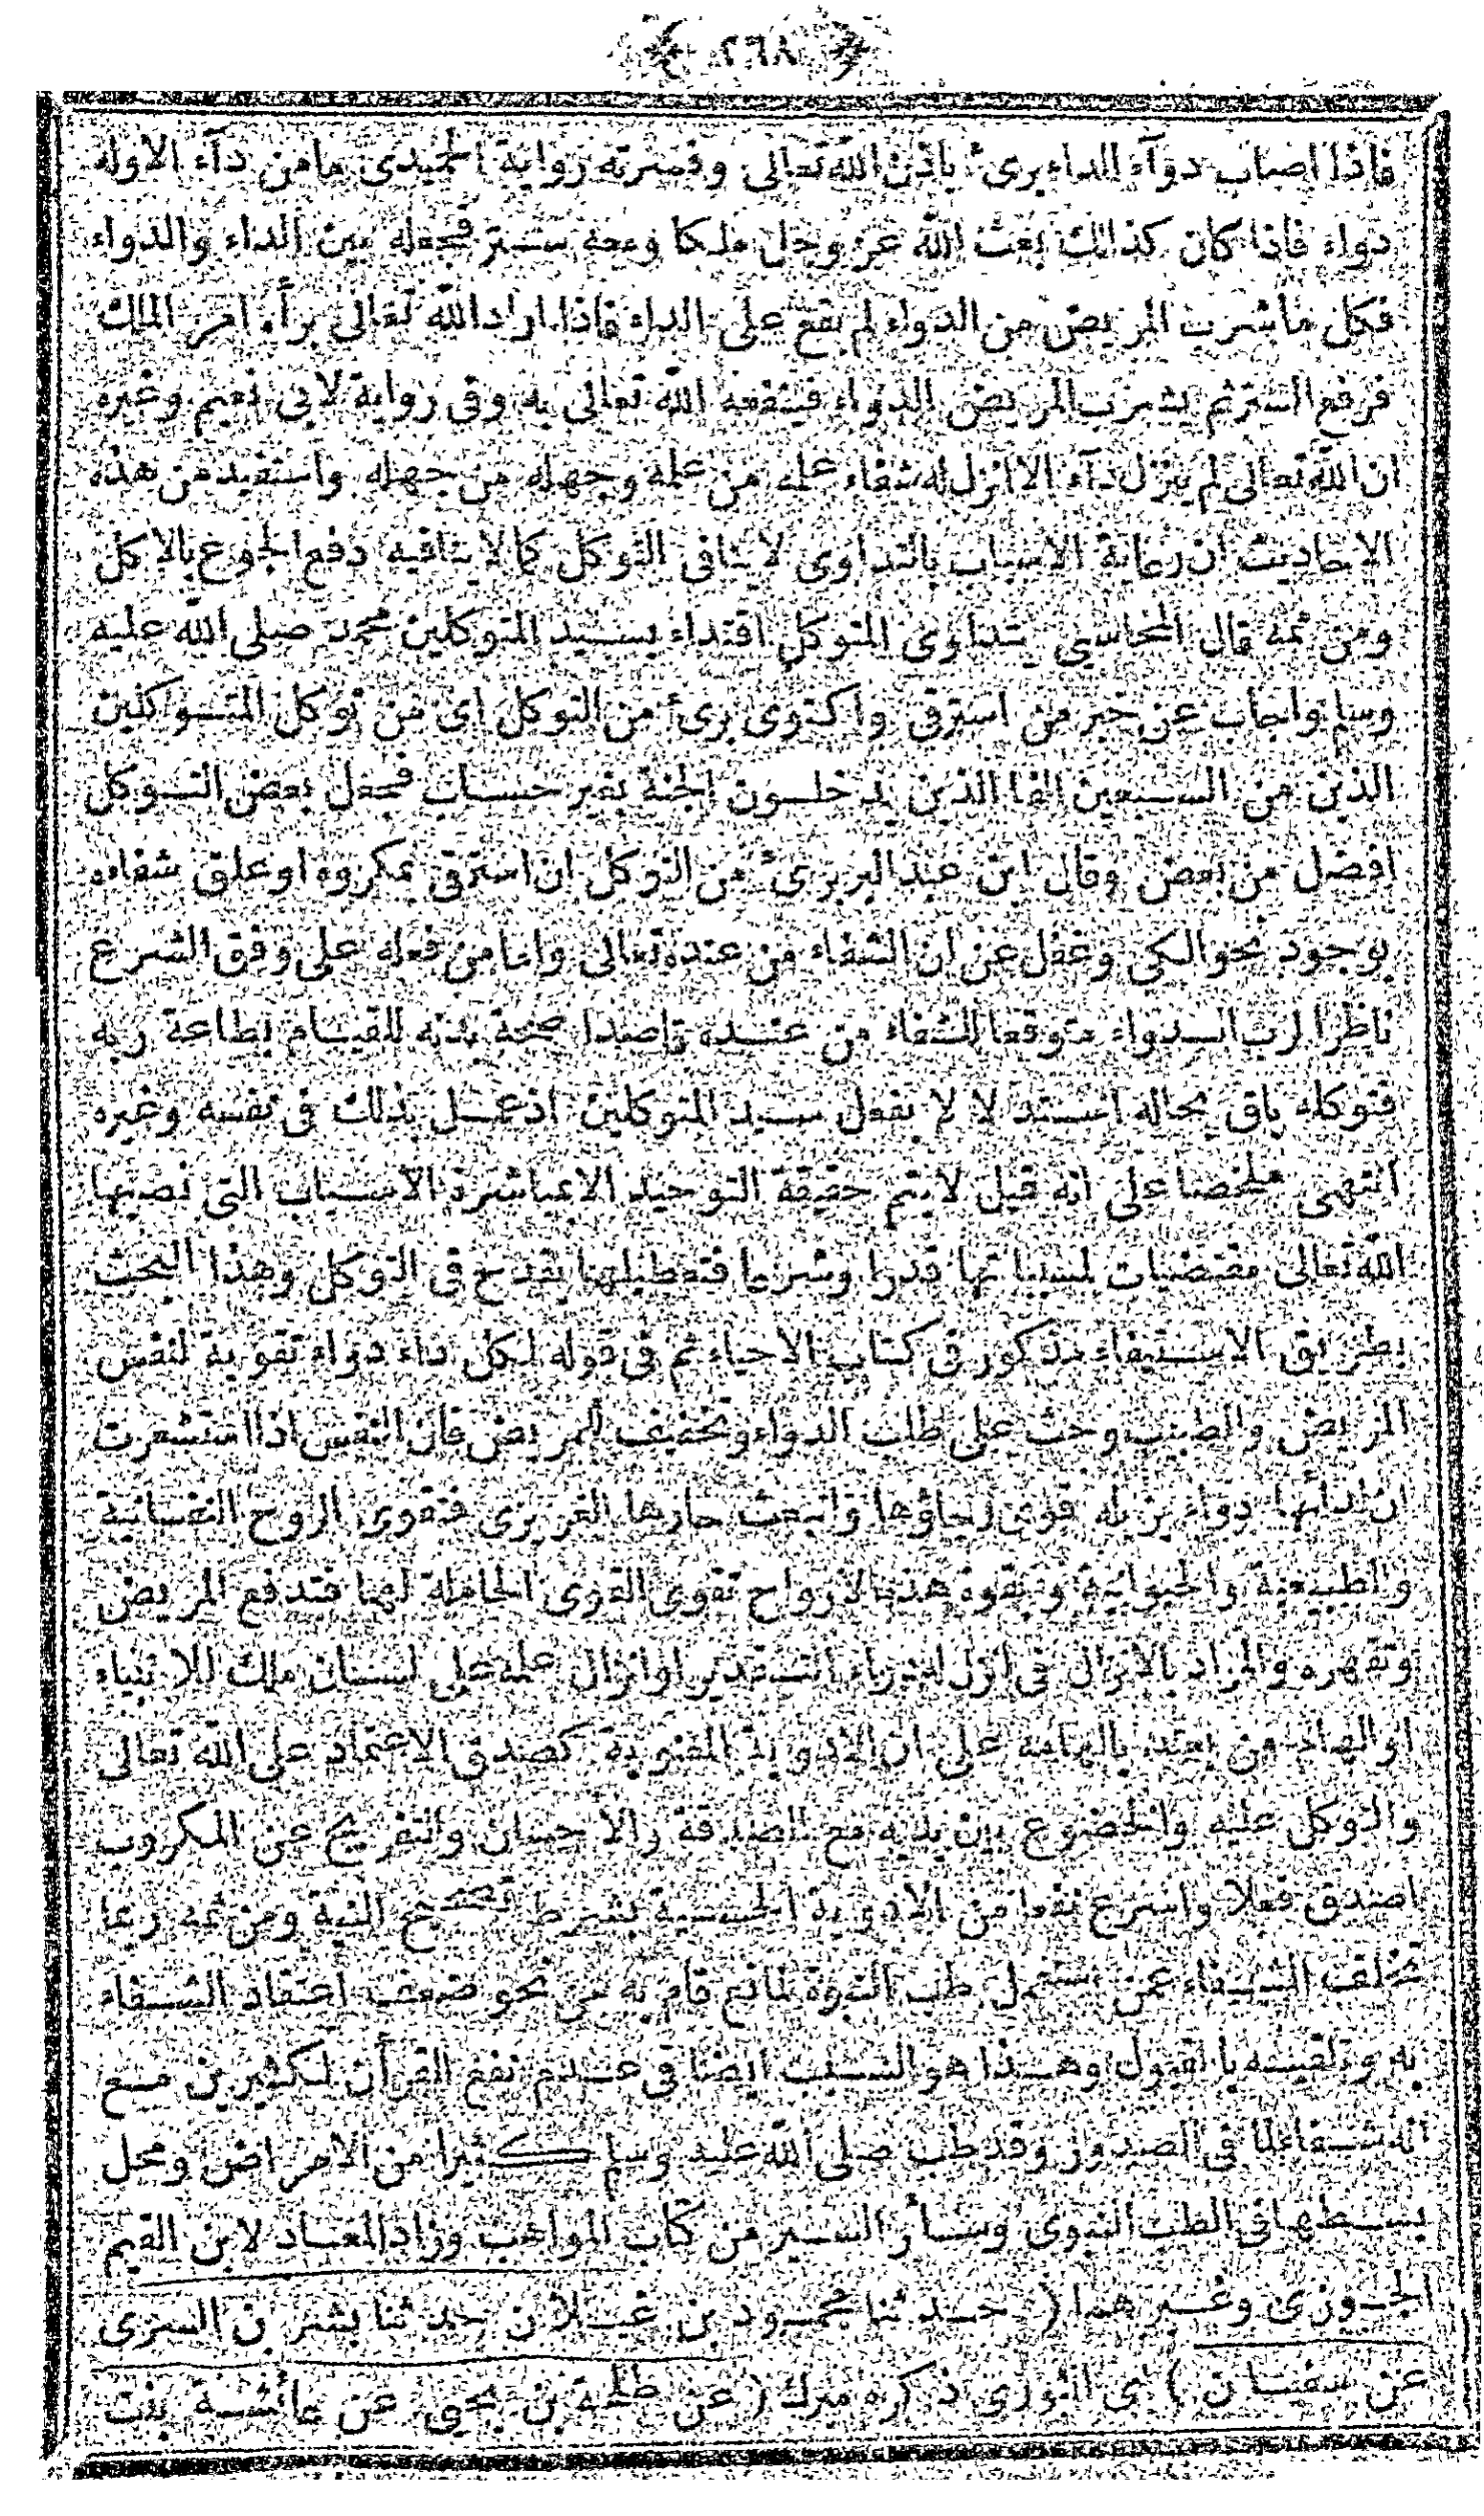 ﴿ ٢٦٨ ﴾
فاذا اصاب دوآء الداء برئ باذن الله تعالى وفسرته رواية الحميدى مامن دآء الاوله
دواء فاذا كان كذالك بعث الله عز وجل ملكا ومعه ستر فجعله بين الداء والدواء
فكل ماشرب المريض من الدواء لم يقع على الداء فاذا اراد الله تعالى برأه امر الملك
فرفع الستر ثم يشرب المريض الدواء فينفعه الله تعالى به وفى رواية لابى نعيم وغيره
ان الله تعالى لم ينزل دآء الا انزل له شفاء علمه من علمه وجهله من جهله واستفيد من هذه
الاحاديث ان رعاية الاسباب بالتداوى لا ينافى التوكل كما لا ينافيه دفع الجوع بالاكل
ومن ثمه قال المحاسبي يتداوى المتوكل اقتداء بسيد المتوكلين محمد صلى الله عليه
وسلم واجاب عن خبر من استرقى واكتوى برئ من التوكل اى من توكل المتوكلين
الذين من السبعين الفا الذين يدخلون الجنة بغير حساب فجعل بعض التوكل
افضل من بعض وقال ابن عبد البر برئ من التوكل ان استرقى بمكروه او علق شفاءه
بوجود نحو الكى وغفل عن ان الشفاء من عنده تعالى وامامن فعله على وفق الشرع
ناظرا لرب الدواء متوقعا الشفاء من عنده قاصدا صحة بدنه للقيام بطاعة ربه
فتوكله باق بحاله استدلالا بفعل سيد المتوكلين اذ عمل بذلك فى نفسه وغيره
انتهى ملخصا على انه قيل لا يتم حقيقة التوحيد الا بمباشرة الاسباب التى نصبها
الله تعالى مقتضيات لمسبباتها قدرا وشرعا فتعطيلها يقدح فى التوكل وهذا البحث
بطريق الاستيفاء مذكور فى كتاب الاحياء ثم فى قوله لكل داء دواء تقوية لنفس
المريض والطبيب وحث على طلب الدواء وتخفيف للمريض فان النفس اذا استشعرت
ان لدائها دواء يزيله قوى رجاؤها وانبعث حارها الغريزى فتقوى الروح النفسانية
والطبيعية والحيوانية وبقوة هذه الارواح تقوى القوى الحاملة لها فتدفع المريض
وتقهره والمراد بالانزال فى انزل له دواء التقدير او انزال علمه على لسان ملك للانبياء
او الهام من يعتد بالهامه على ان الادوية المعنوية كصدق الاعتماد على الله تعالى
والتوكل عليه والخضوع بين يديه مع الصدقة والاحسان والتفريج عن المكروب
اصدق فعلا واسرع نفعا من الادوية الحسية بشرط تصحيح النية ومن ثمه ربما
تخلف الشفاء عمن استعمل طب النبوة لمانع قام به من نحو ضعف اعتقاد الشفاء
به وتلقيه بالقبول وهذا هو السبب ايضا فى عدم نفع القرأن لكثيرين مع
انه شفاء لما فى الصدور وقد طب صلى الله عليه وسلم كثيرا من الامراض ومحل
بسطها فى الطب النبوى وسائر السير من كتاب المواهب وزاد المعاد لابن القيم
الجوزى وغيرهما ( حدثنا محمود بن غيلان حدثنا بشر بن السرى
عن سفيان ) اى الثورى ذكره ميرك ( عن طلحة بن يحيى عن عائشة بنت